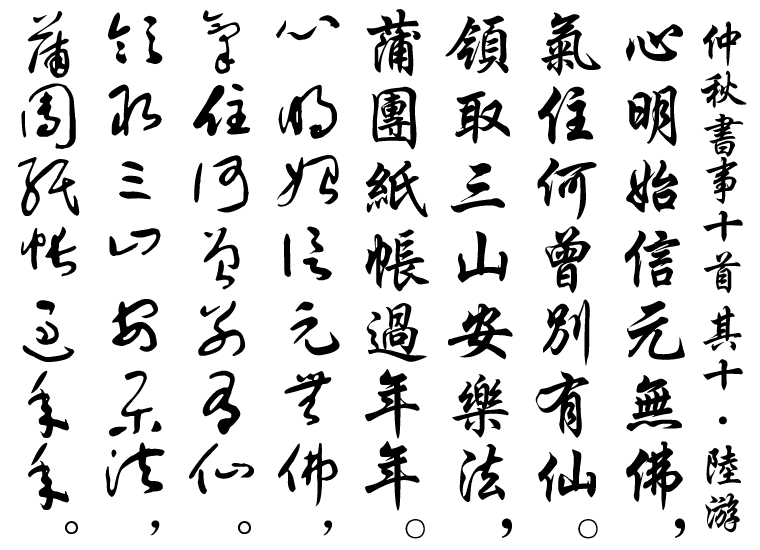 仲秋書事十首其十・陸游
心明始信元無佛，
氣住何曾別有仙。
領取三山安樂法，
蒲團紙帳過年年。
心明始信元無佛，
氣住何曾別有仙。
領取三山安樂法，
蒲團紙帳過年年。